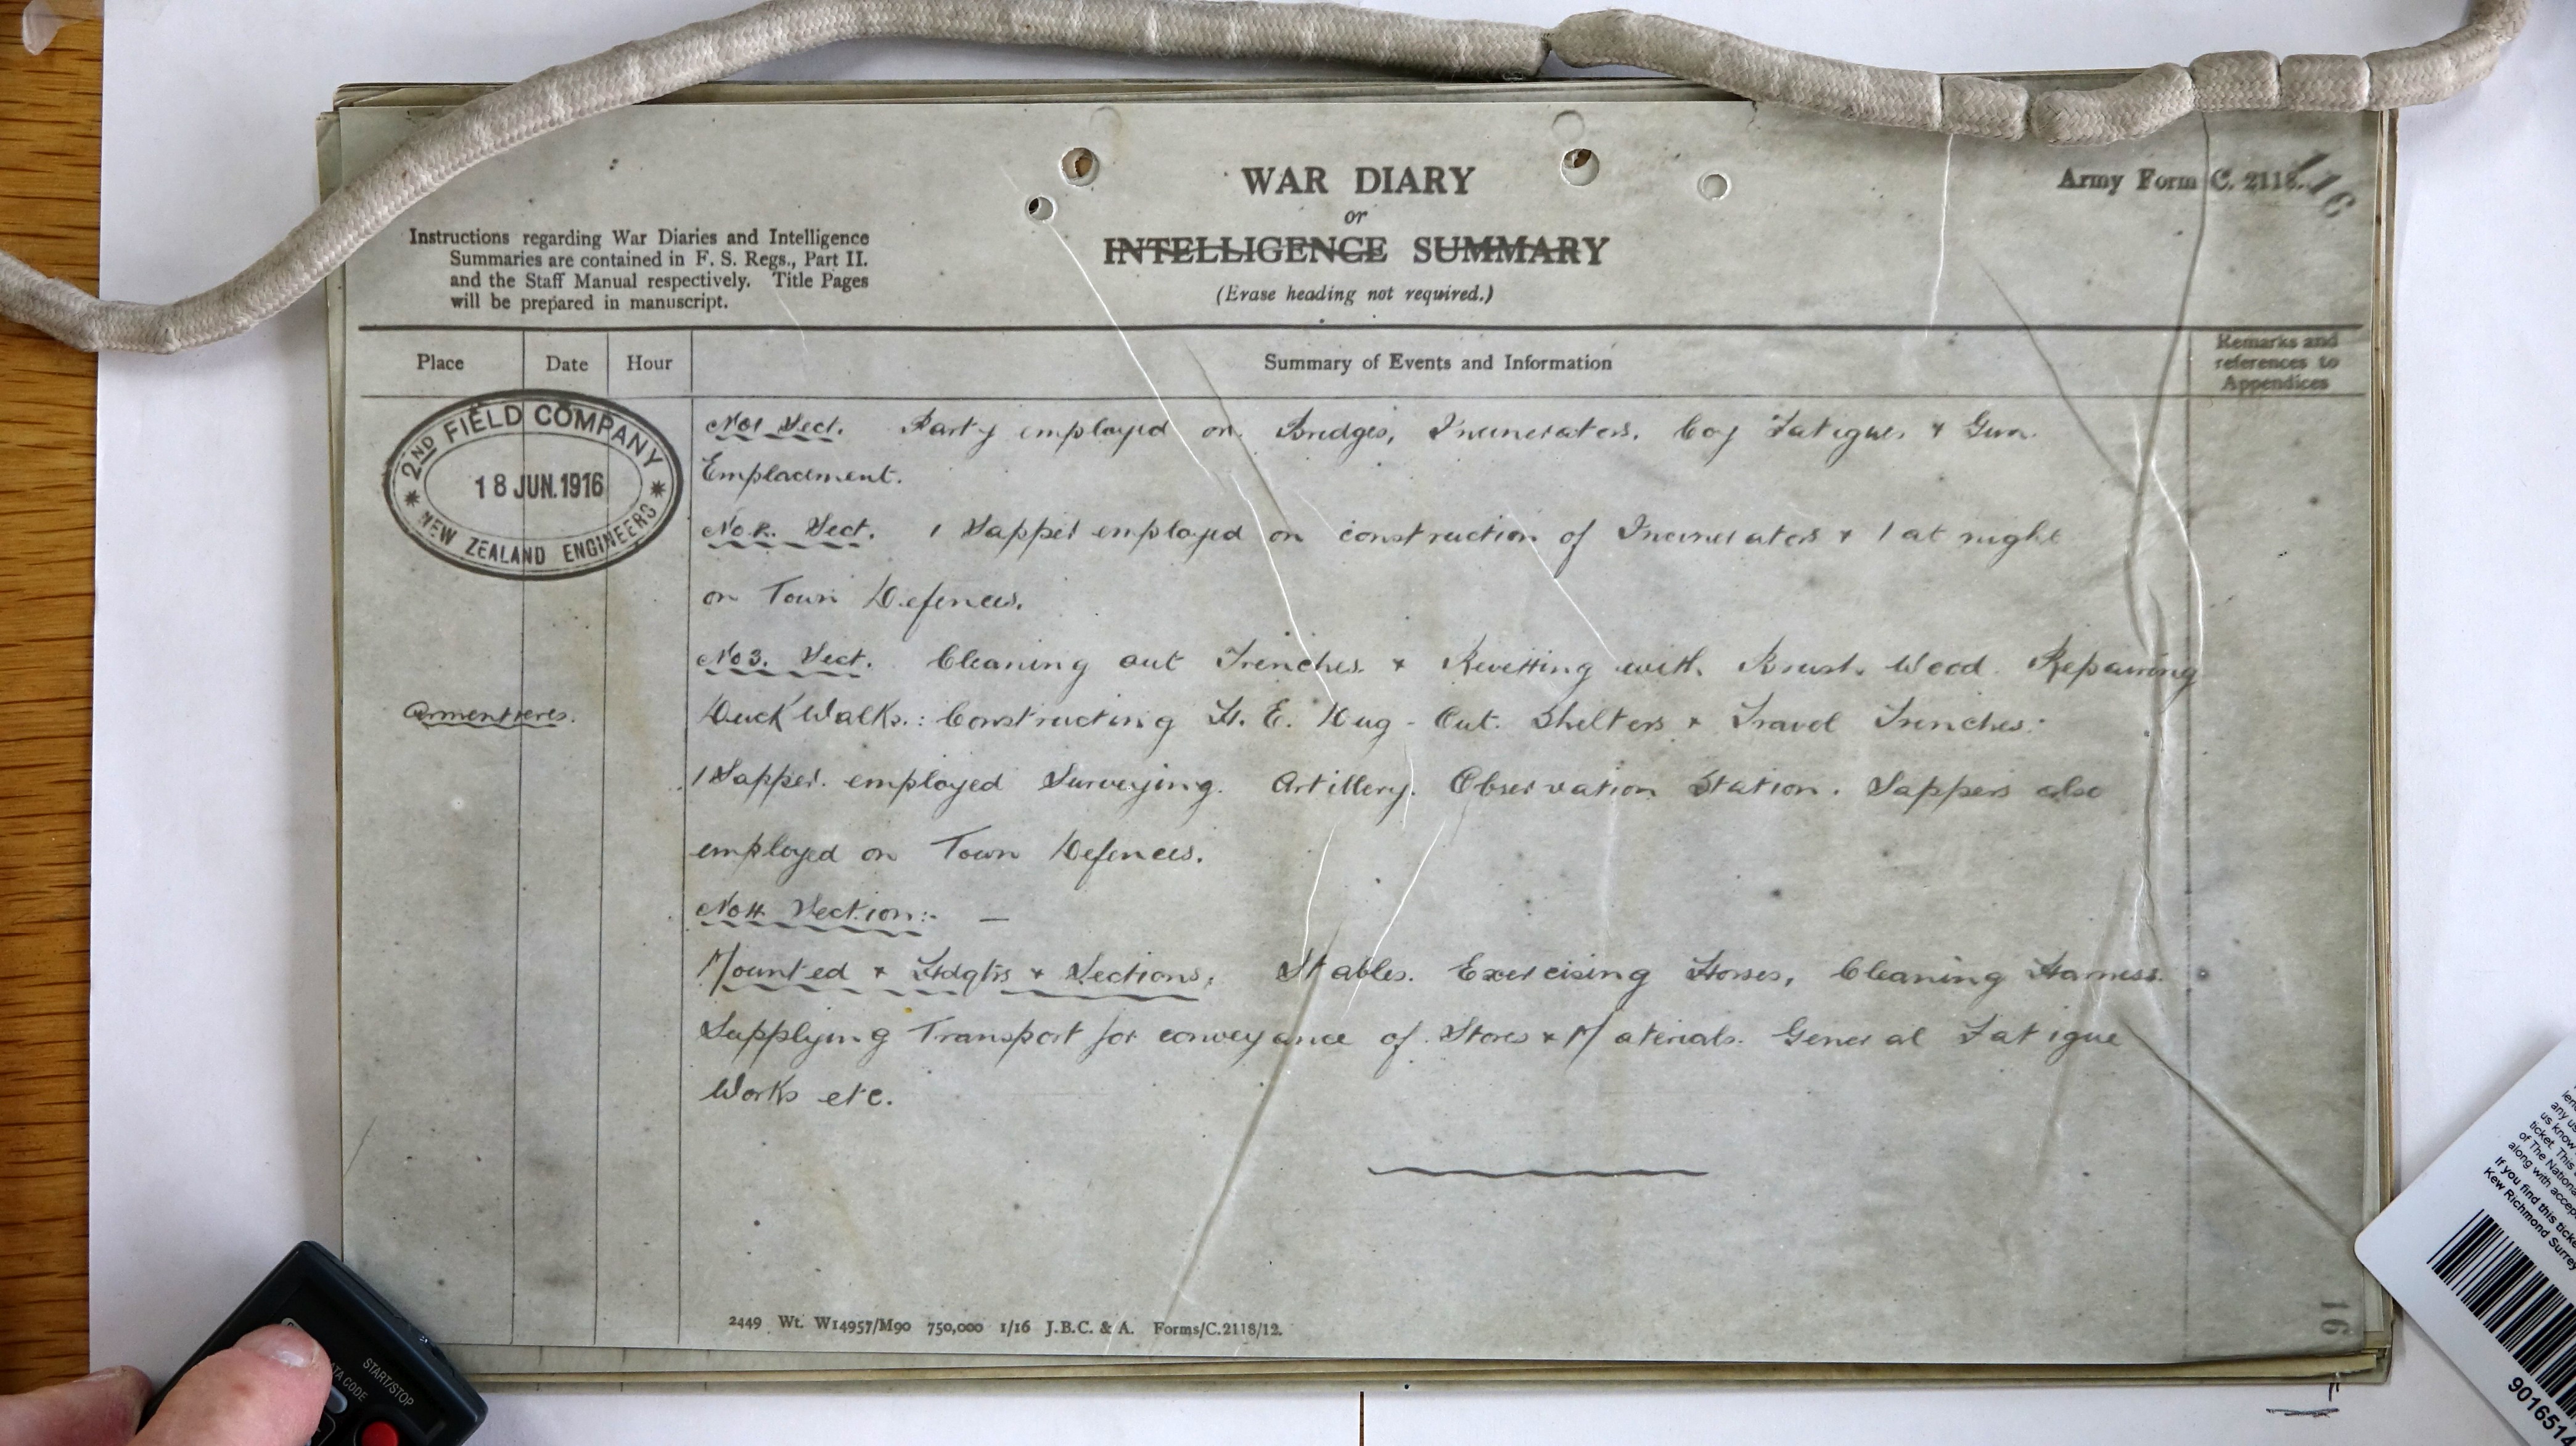 WAR DIARY
or
INTELLIGENCE SUMMARY
(Erase heading not required.)
Army Form C. 2118.
Instructions regarding War Diaries and Intelligence
Summaries are contained in F. S. Regs., Part II.
and the Staff Manual respectively. Title Pages
will be prepared in manuscript.
Place Date Hour Summary of Events and Information Remarks and references to Appendices
2ND FIELD COMPANY
18 JUN. 1916
NEW ZEALAND ENGINEERS
No1 Sect. Party employed on Bridges, Incinerators. Coy Fatigues & Gun
Emplacement.
No 2. Sect. 1 Sapper employed on construction of Incinerators & 1 at night
on Town Defences.
No 3. Sect. Cleaning out Trenches & Revetting with Brush Wood. Repairing
Armentieres.
Duck Walks.: Constructing H. E. Dug-Out. Shelters & Travel Trenches:
1 Sapper. employed Surveying. Artillery. Observation Station. Sappers also
employed on Town Defences.
No 4. Section:- —
Mounted & Hdqtrs & Sections: Stables. Exercising Horses, Cleaning Harness.
Supplying Transport for conveyance of Stores & Materials. General Fatigue
Works etc.
2449 Wt. W14957/M90 750,000 1/16 J.B.C. & A. Forms/C.2118/12.
16
START/STOP
DATA CODE
of The National
If you find this ticket
Kew Richmond Surrey
9016514